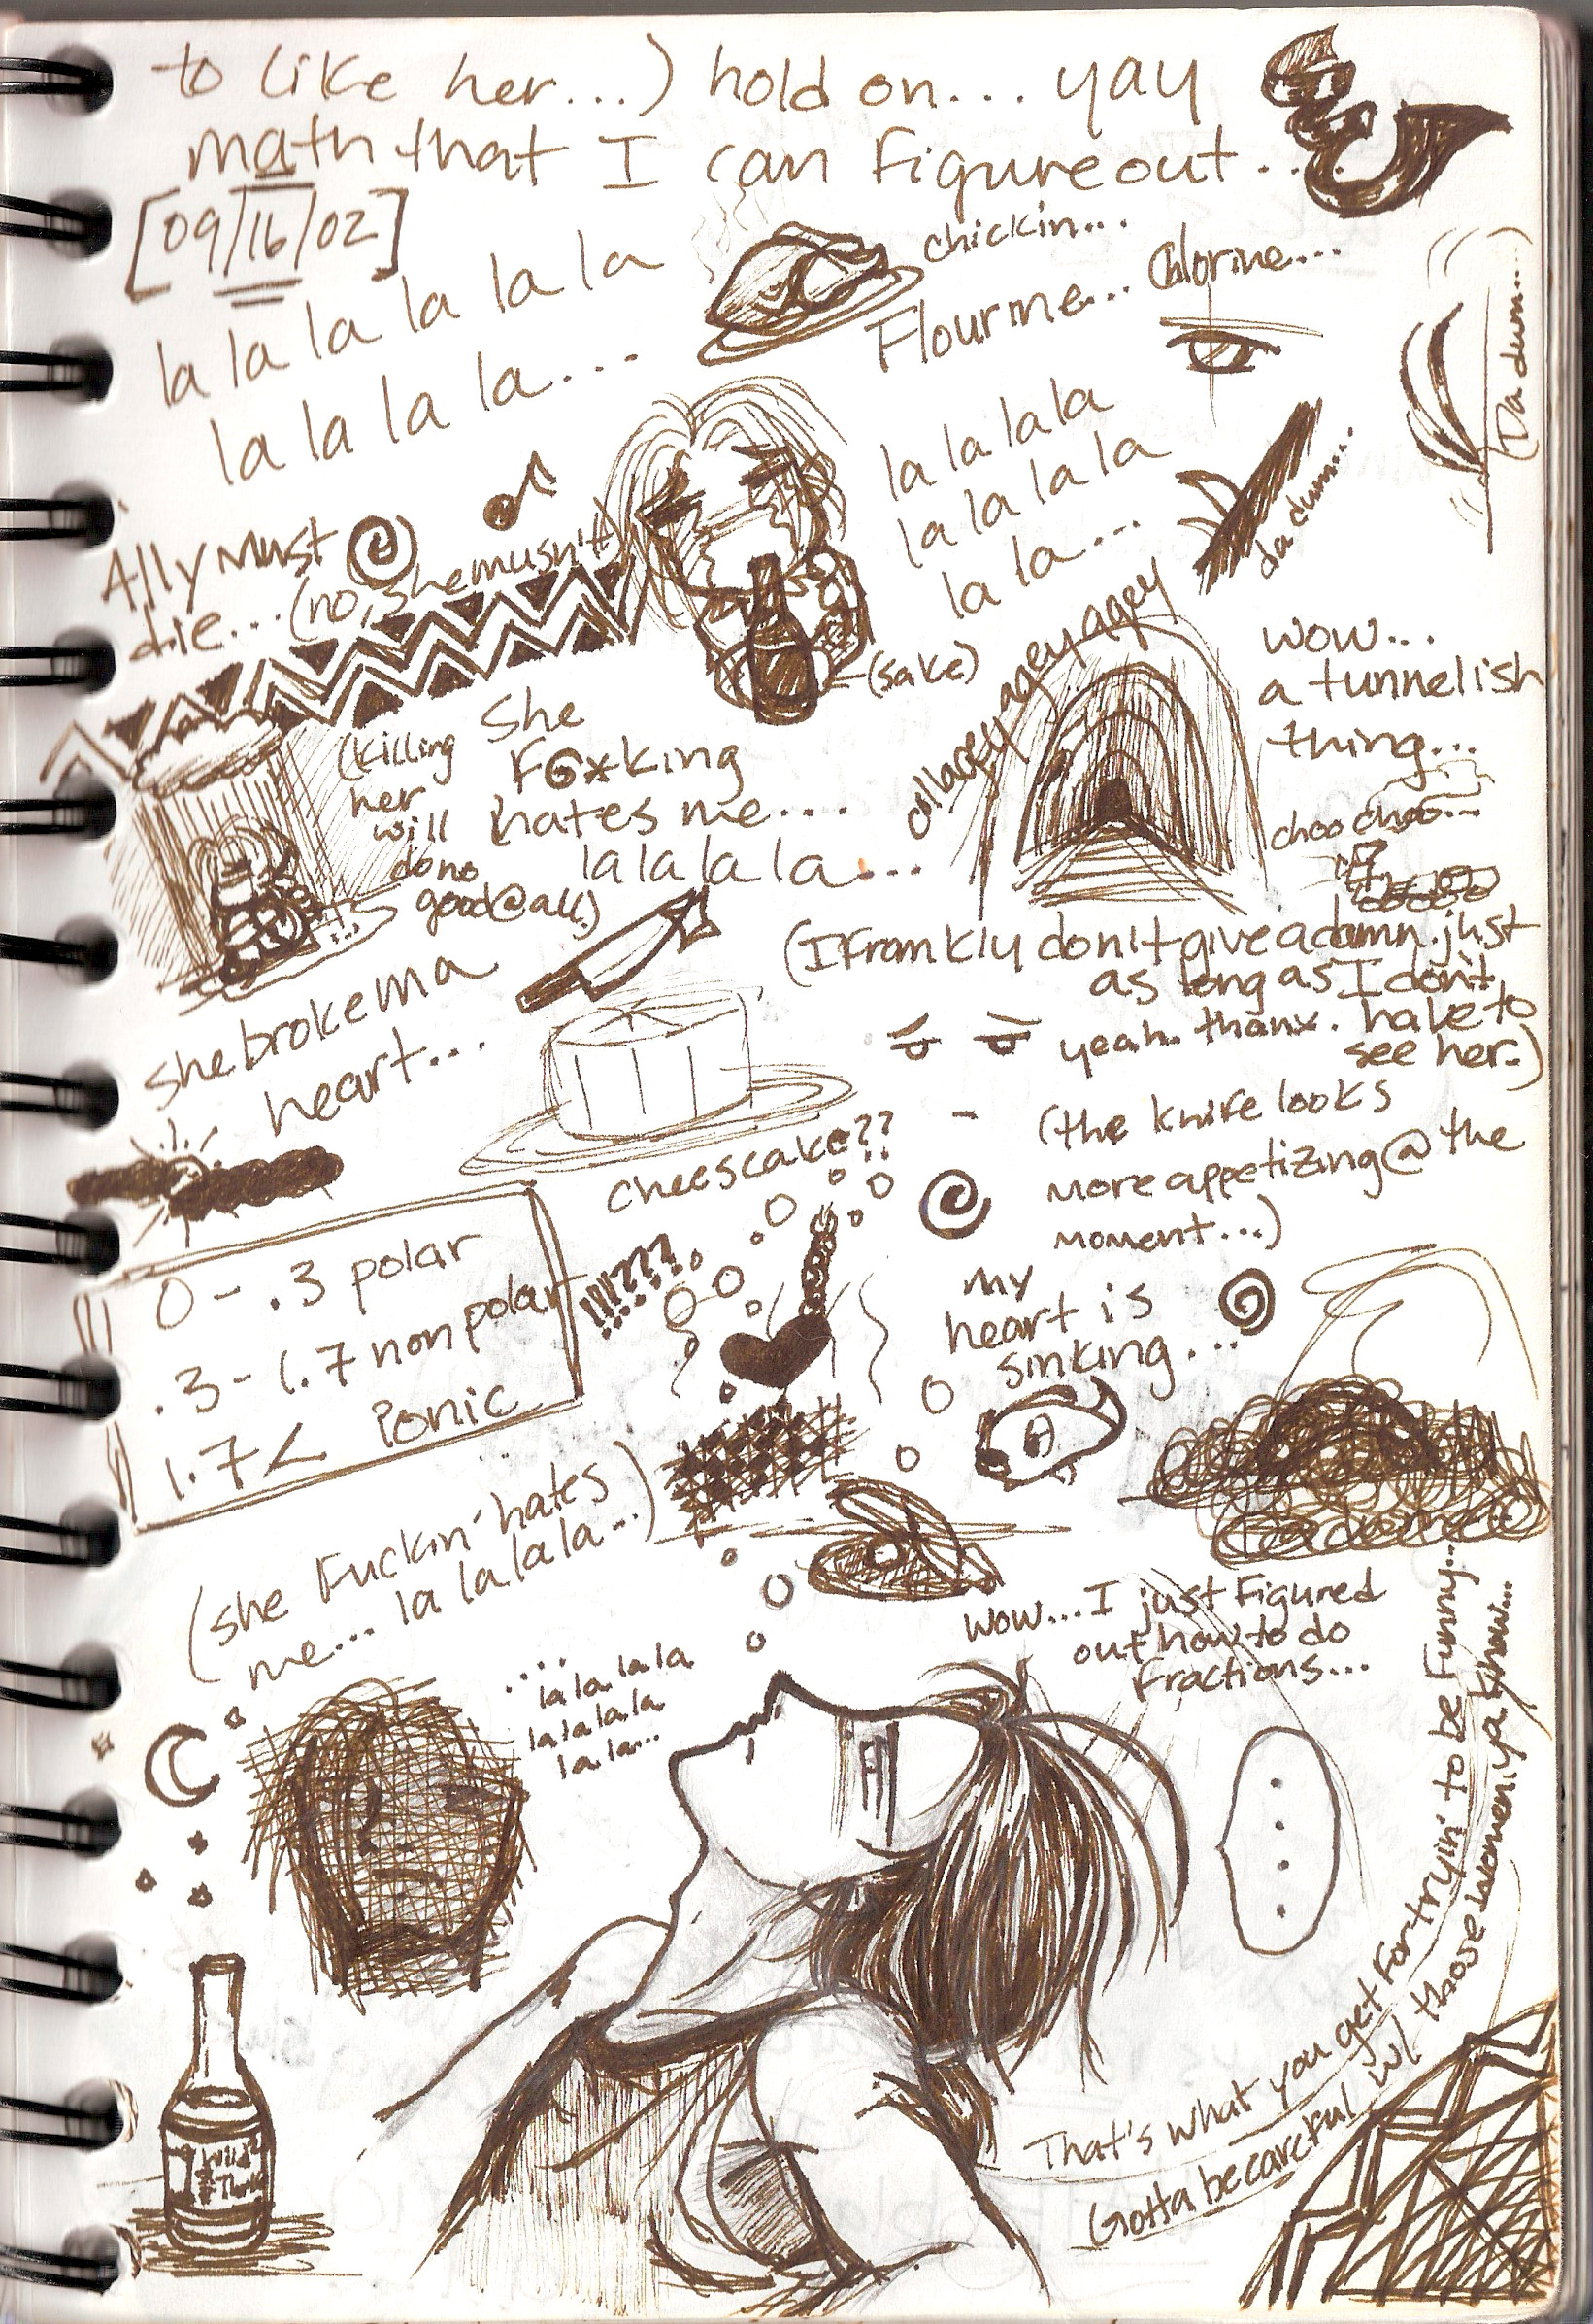 to like her...) hold on... yay
math that I can figure out...
[09/16/02]
la la la la la la
la la la la...
chickin...
Flourine... Chlorine...
Da dum...
la la la la
la la la la
la la...
da dum...
Ally must
die... (no, she musn't)
(sake)
collagey agey agey agey
wow...
a tunnelish
thing...
choo choo...
(killing
her
will
do no
good @ all.)
She
F@*king
hates me....
la la la la...
(I frankly don't give a damn. just
as long as I don't
have to
see her.)
yeah. thanx.
she broke ma
heart...
cheescake??
(the knife looks
more appetizing @ the
moment...)
0 - .3 polar
.3 - 1.7 nonpolar
1.7 < ionic
!!!???
my
heart is
sinking...
(she fuckin' hates
me... la la la la...)
Wow... I just figured
out how to do
fractions...
...
la la la la
la la la la
la la...
....
Wild
That's what you get for tryin' to be funny...
Gotta be careful w/ those women, ya know...